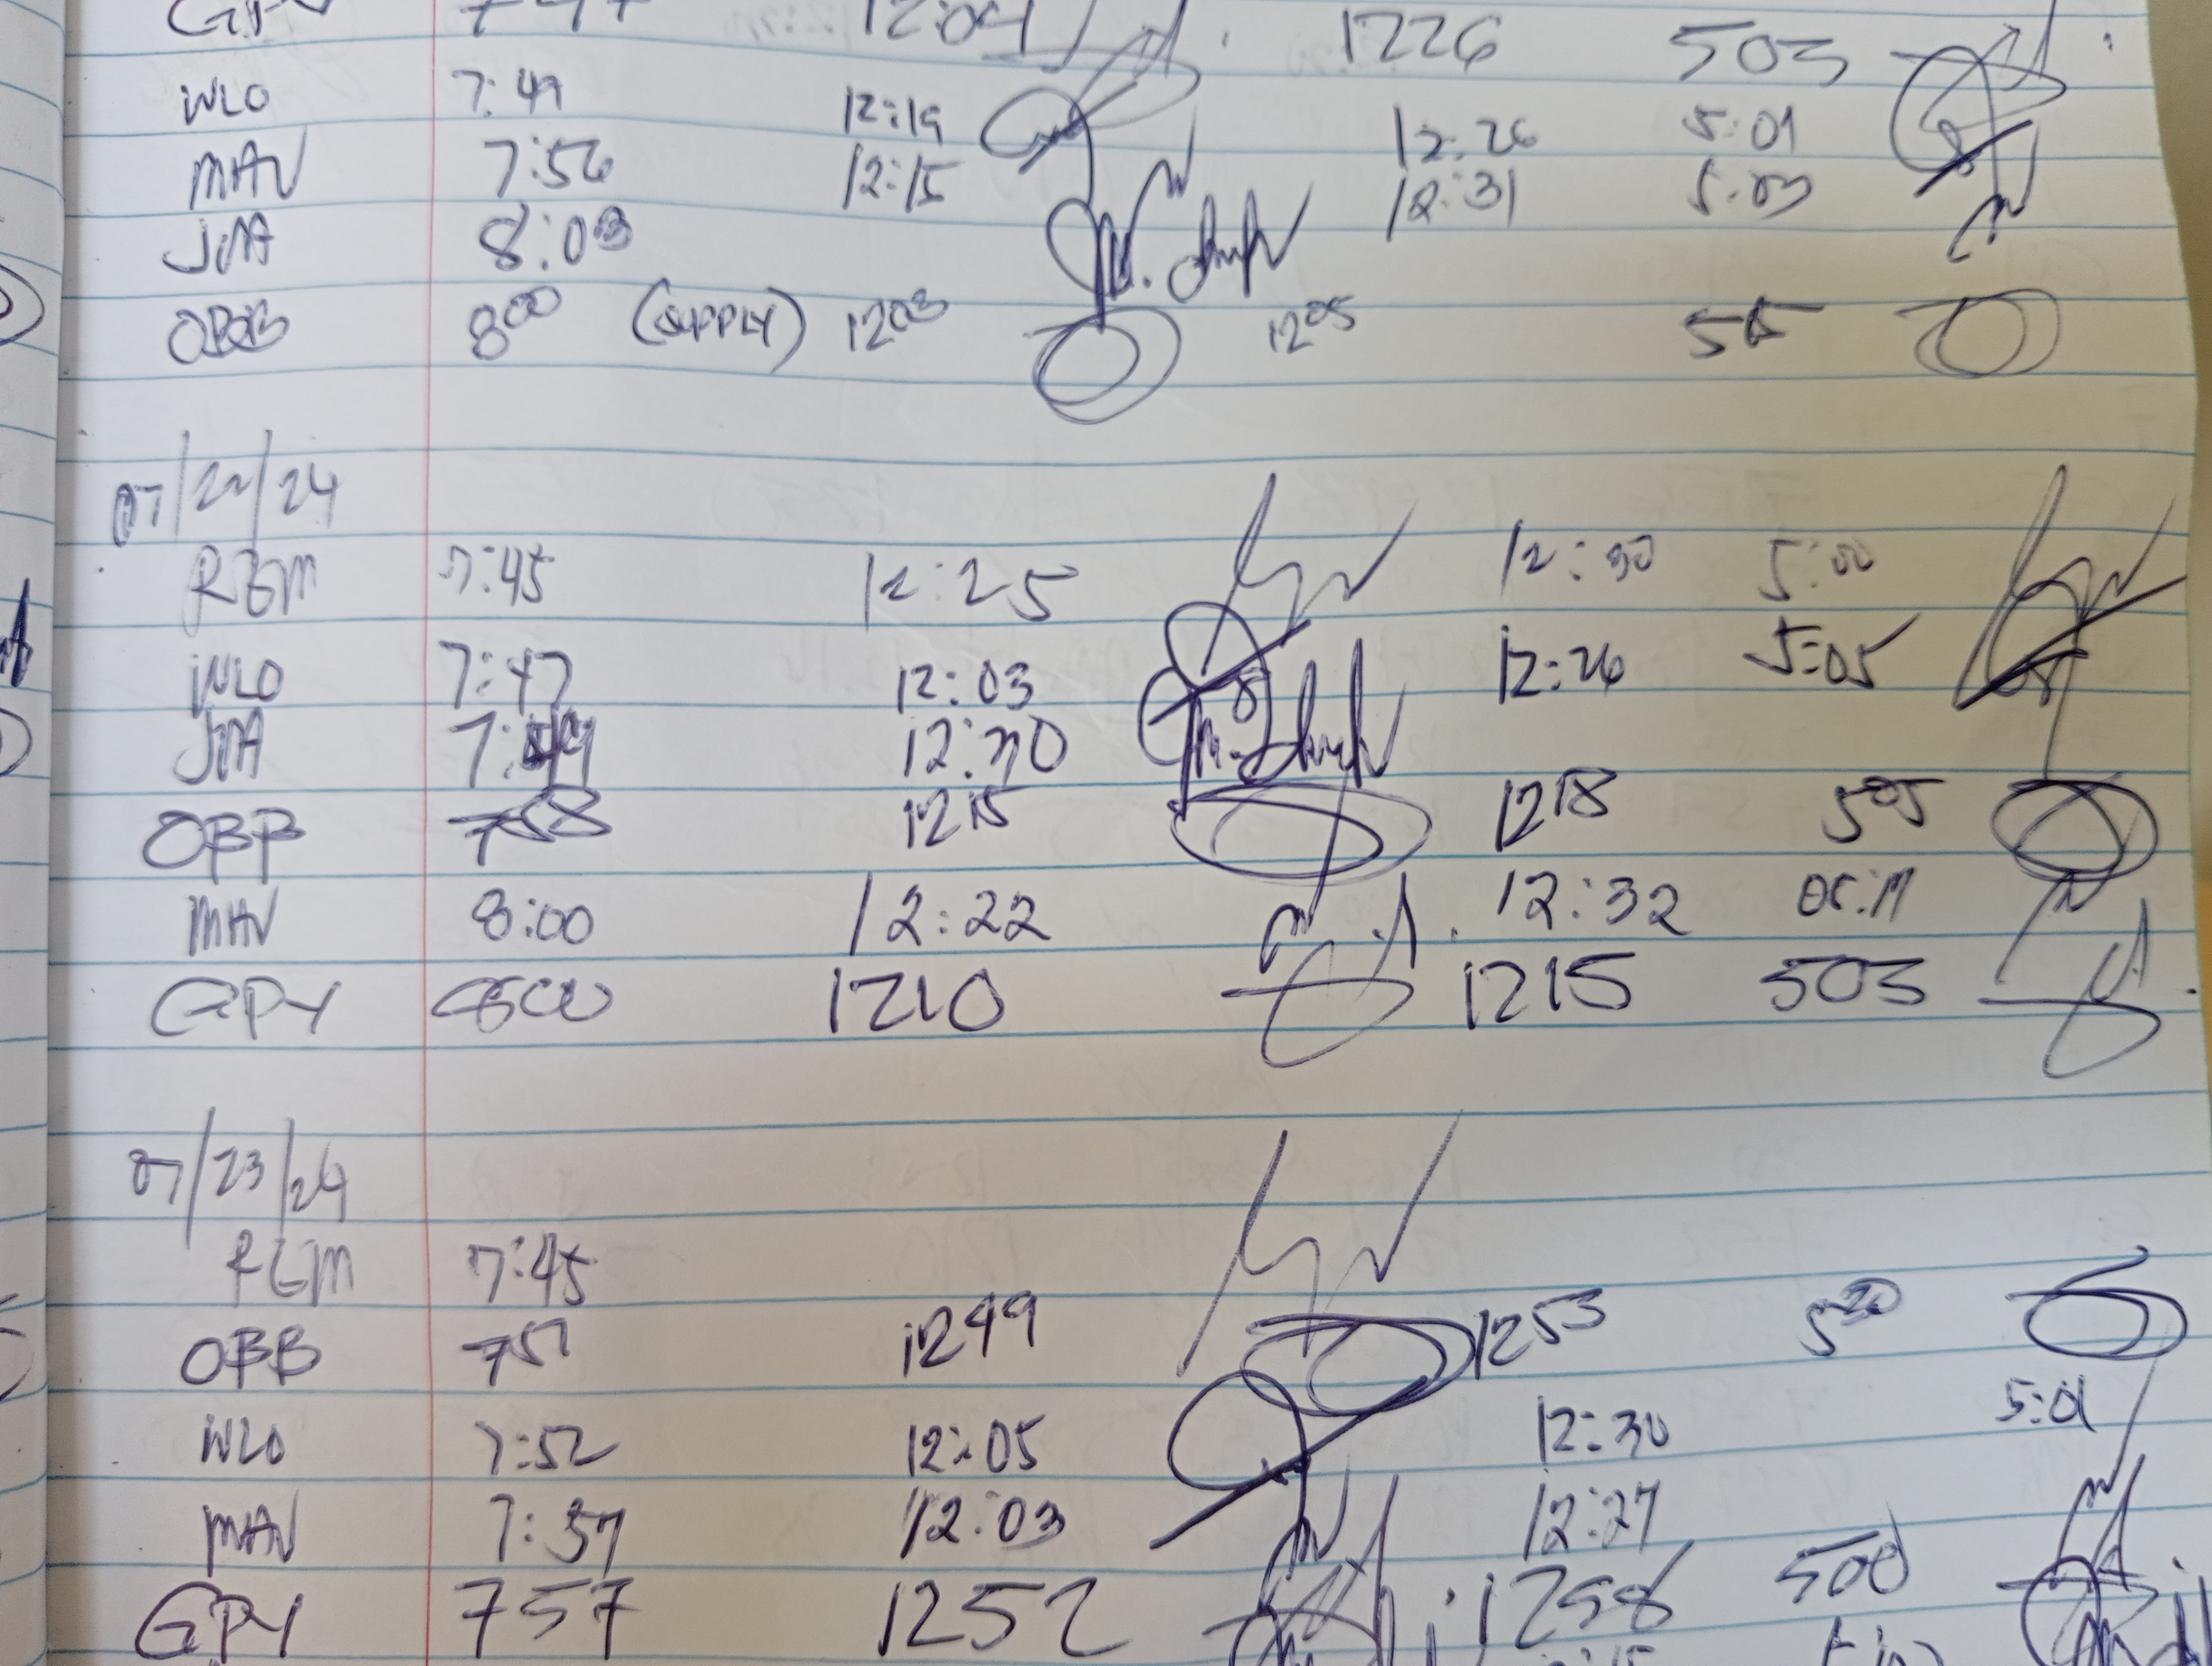 12:04 1226 503
WLO 7:49 12:19 12:26 5:01
MAV 7:56 12:15 12:31 5:03
JMA 8:03
OBB 8 00 (SUPPLY) 12 03 12 05 5 15
07/22/24
RGM 7:45 12:25 12:30 5:00
WLO 7:47 12:03 12:26 5:05
JMA 12:30
OBB 7 58 12 15 12 18 5 05
MAV 8:00 12:22 12:32 05:11
GPY 800 1210 1215 503
07/23/24
RGM 7:45
OBB 7 51 12 49 12 53 5 20
WLO 7:52 12:05 12:30 5:01
MAV 7:57 12:03 12:27
GPY 757 1252 1258 500